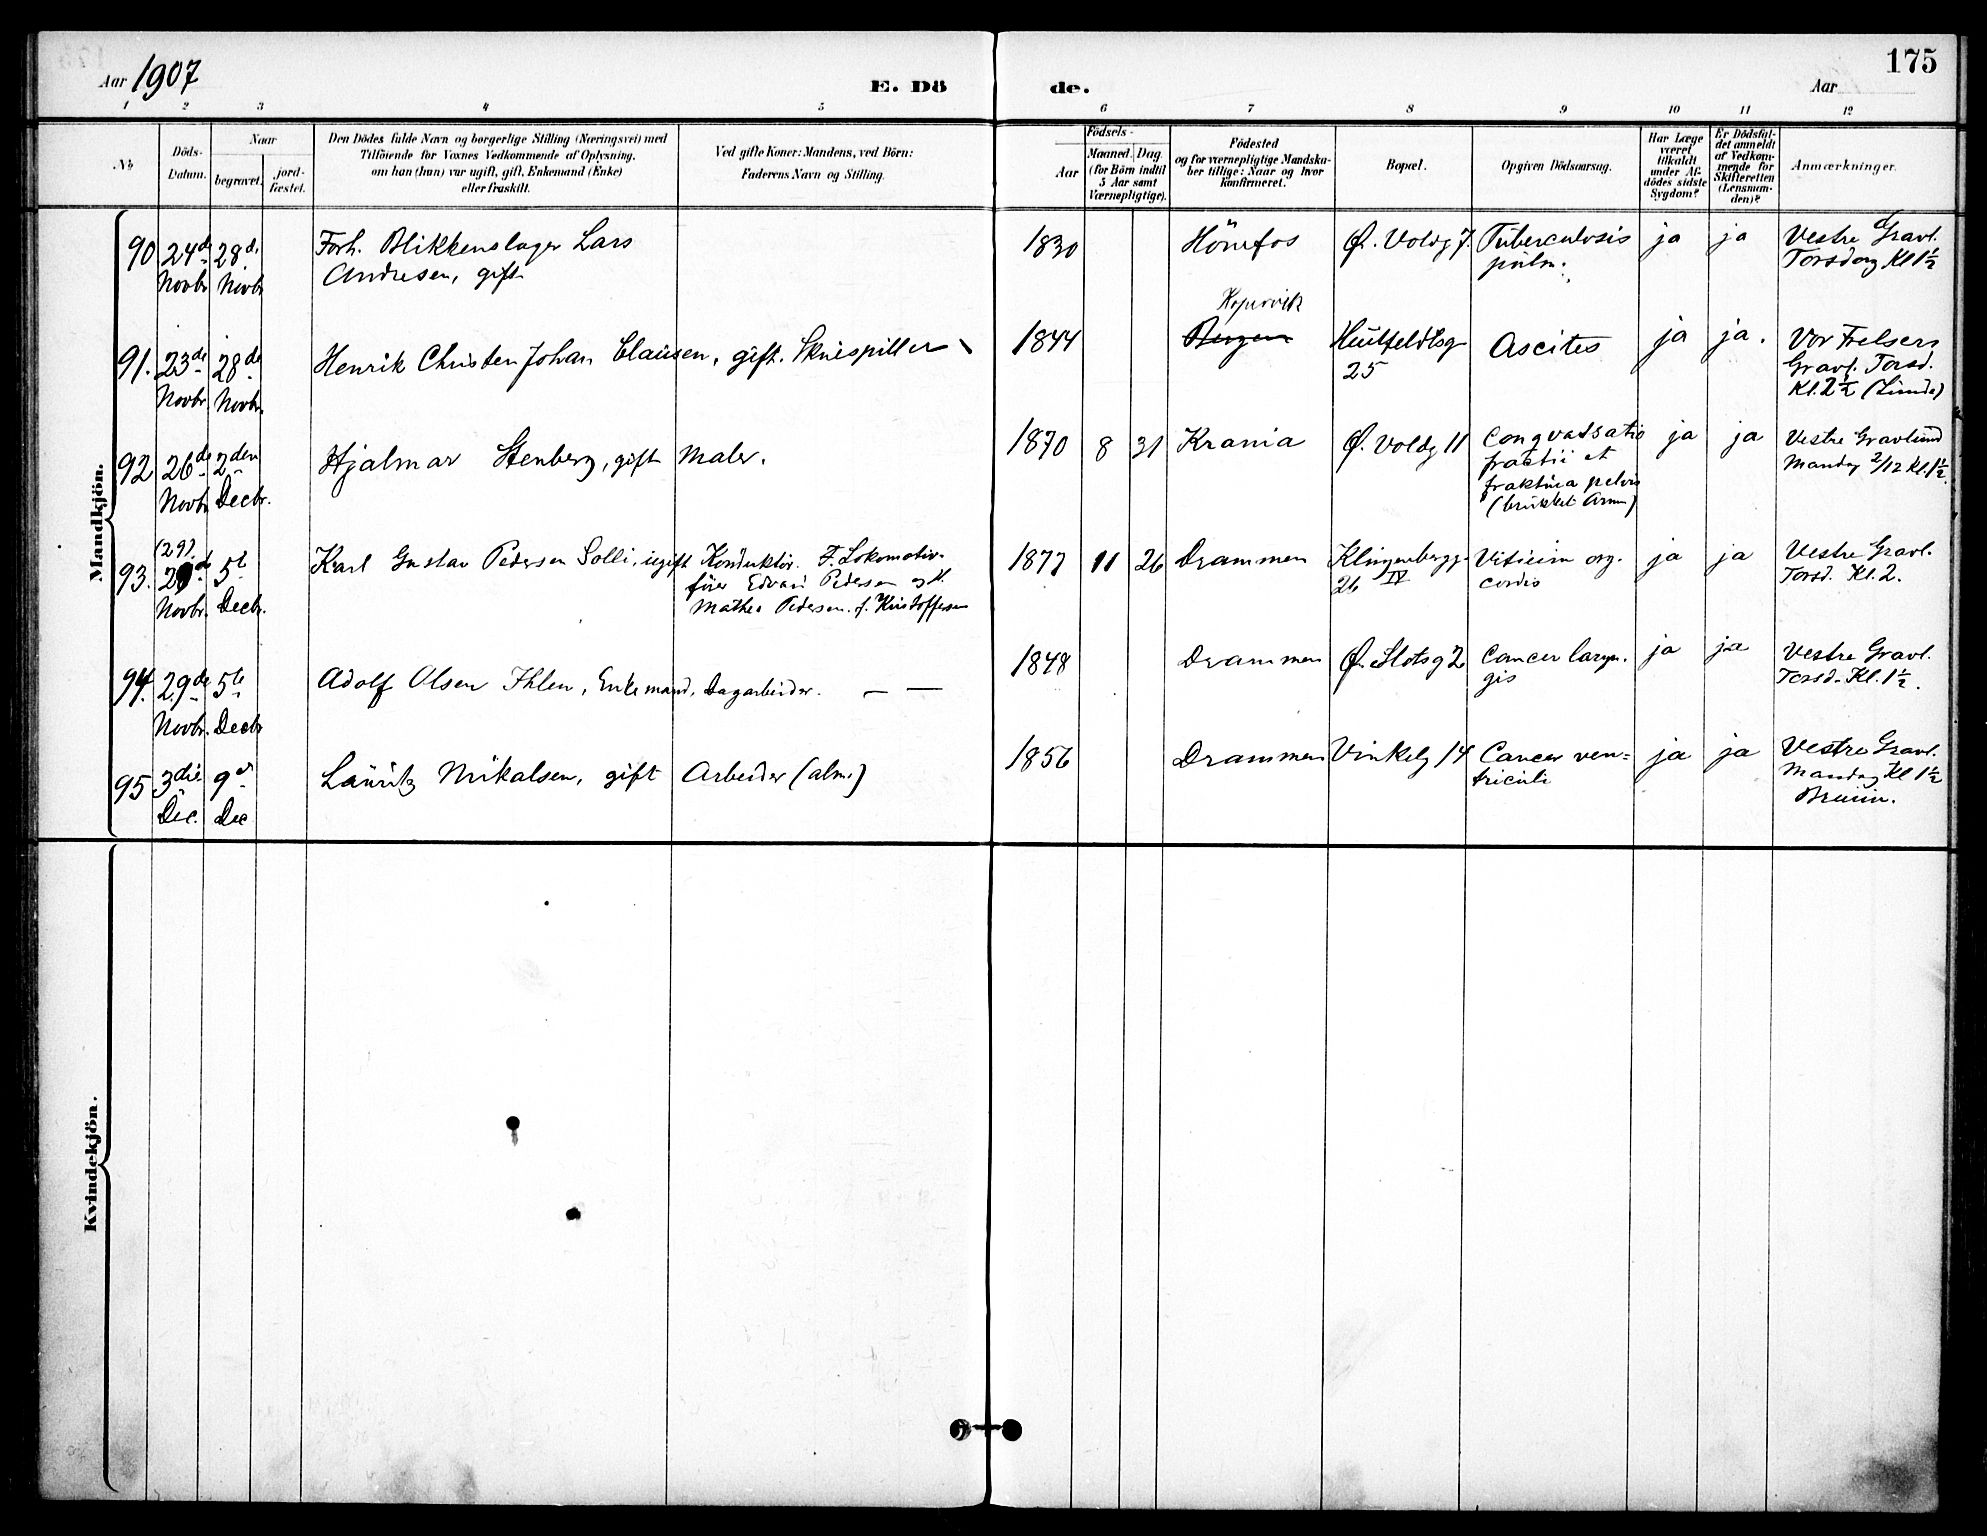 175
Aar 1907
E. Dö
de.
Aar
1 2 3 4 5 6 7 8 9 10 11 12
No
Döds-
Datum.
Naar
begravet.
jord-
fæstet.
Den Dödes fulde Navn og borgerlige Stilling (Næringsvei) med
Tilföiende for Voxnes Vedkommende af Oplysning,
om han (hun) var ugift, gift, Enkemand (Enke)
eller fraskilt.
Ved gifte Koner: Mandens, ved Börn:
Faderens Navn og Stilling.
Födsels-
Aar
Maaned. Dag.
(for Börn indtil
5 Aar samt
Værnepligtige).
Födested
og for værnepligtige Mandska-
ber tillige: Naar og hvor
konfirmeret.
Bopæl.
Opgiven Dödsaarsag.
Har Læge
været
tilkaldt
under Af-
dödes sidste
Sygdom?
Er Dödsfal-
det anmeldt
af Vedkom-
mende for
Skifteretten
(Lensman-
den)?
Anmærkninger.
Mandkjön.
90 24d 28d Forh. Blikkenslager Lars 1830 Hönefos Ø. Voldg 7 Tuberculosis ja ja Vestre Gravl.
Novbr Novbr Andresen, gift pulm. Torsdag Kl 1½
Kopervik
91. 23de 28de Henrik Christen Johan Clausen, gift. Skuespiller 1844 Bergen Huitfeldtsg Ascites ja ja. Vor Frelsers
Novbr. Novbr. 25 Gravl. Torsd.
Kl. 2½ (Lunde)
92 26de 2den Hjalmar Stenberg, gift Maler. 1870 8 31 Krania Ø. Voldg 11 Conqvassatio ja ja Vestre Gravlund
Novbr. Decbr. fractii et Mandag 2/12 Kl. 1½.
fraktura pelvis
(brukket Arm)
(29).
93. 5t Karl Gustav Pedersen Solli, ugift Konduktör. F. Lokomotiv- 1877 11 26 Drammen Klingenbergg. Vitium org. ja ja Vestre Gravl.
Novbr. Decbr. förer Edvard Pedersen og H. 26 IV cordis Torsd. Kl. 2.
Mathea Pedersen f. Kristoffersen
94. 29de 5te Adolf Olsen Ihlen, Enkemand, Dagarbeider. — — 1848 Drammen Ø. Slotsg 2 Cancer laryn- ja ja Vestre Gravl.
Novbr. Decbr gis Torsd. Kl. 1½.
95 3die 9de Lauritz Mikalsen, gift Arbeider (alm.) 1856 Drammen Vinkelg 14 Cancer ven= ja ja Vestre Gravl.
Dec. Dec triculi Mandag Kl 1½
Bruun.
Kvindekjön.